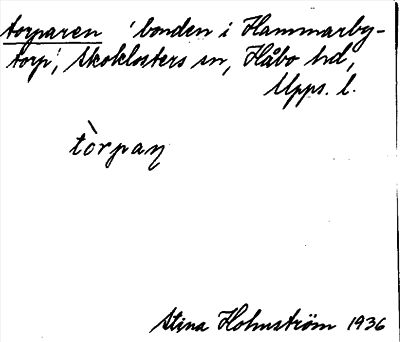 torparen 'bonden i Hammarby-
torp', Skoklosters sn, Håbo hd,
Upps. l.
tòrpaꞃ
Stina Holmström 1936